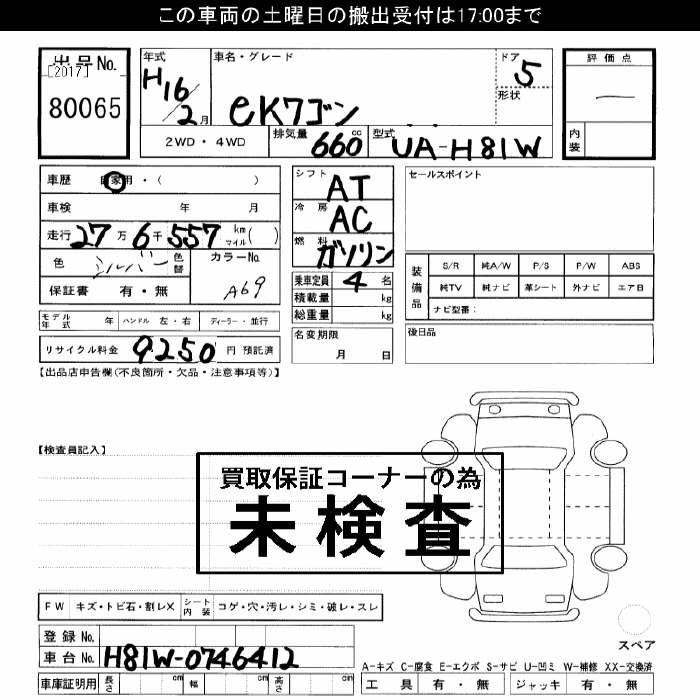 この車両の土曜日の搬出受付は17:00まで
出品No.
[2017]
80065
年式
H16/2月
車名・グレード
eKワゴン
ドア
5
形状
評価点
―
内装
2WD・4WD
排気量
660cc
型式
UA-H81W
車歴 自家用・( )
車検 年 月
走行 27万6千557 km マイル( )
色 シルバー 色替
カラーNo.
A69
保証書 有・無
モデル年式 年 ハンドル 左・右 ディーラー・並行
リサイクル料金 9250 円 預託済
シフト AT
冷房 AC
燃料 ガソリン
乗車定員 4 名
積載量 kg
総重量 kg
名変期限
月 日
セールスポイント
装備品
S/R 純A/W P/S P/W ABS
純TV 純ナビ 革シート 外ナビ エアB
ナビ型番:
後日品
【出品店申告欄(不良箇所・欠品・注意事項等)】
【検査員記入】
買取保証コーナーの為
未検査
FW キズ・トビ石・割レX シート内装 コゲ・穴・汚レ・シミ・破レ・スレ
登録No.
車台No. H81W-0746412
車庫証明用 長さ cm 幅 cm 高さ cm
スペア
A-キズ C-腐食 E-エクボ S-サビ U-凹ミ W-補修 XX-交換済
工具 有・無 ジャッキ 有・無